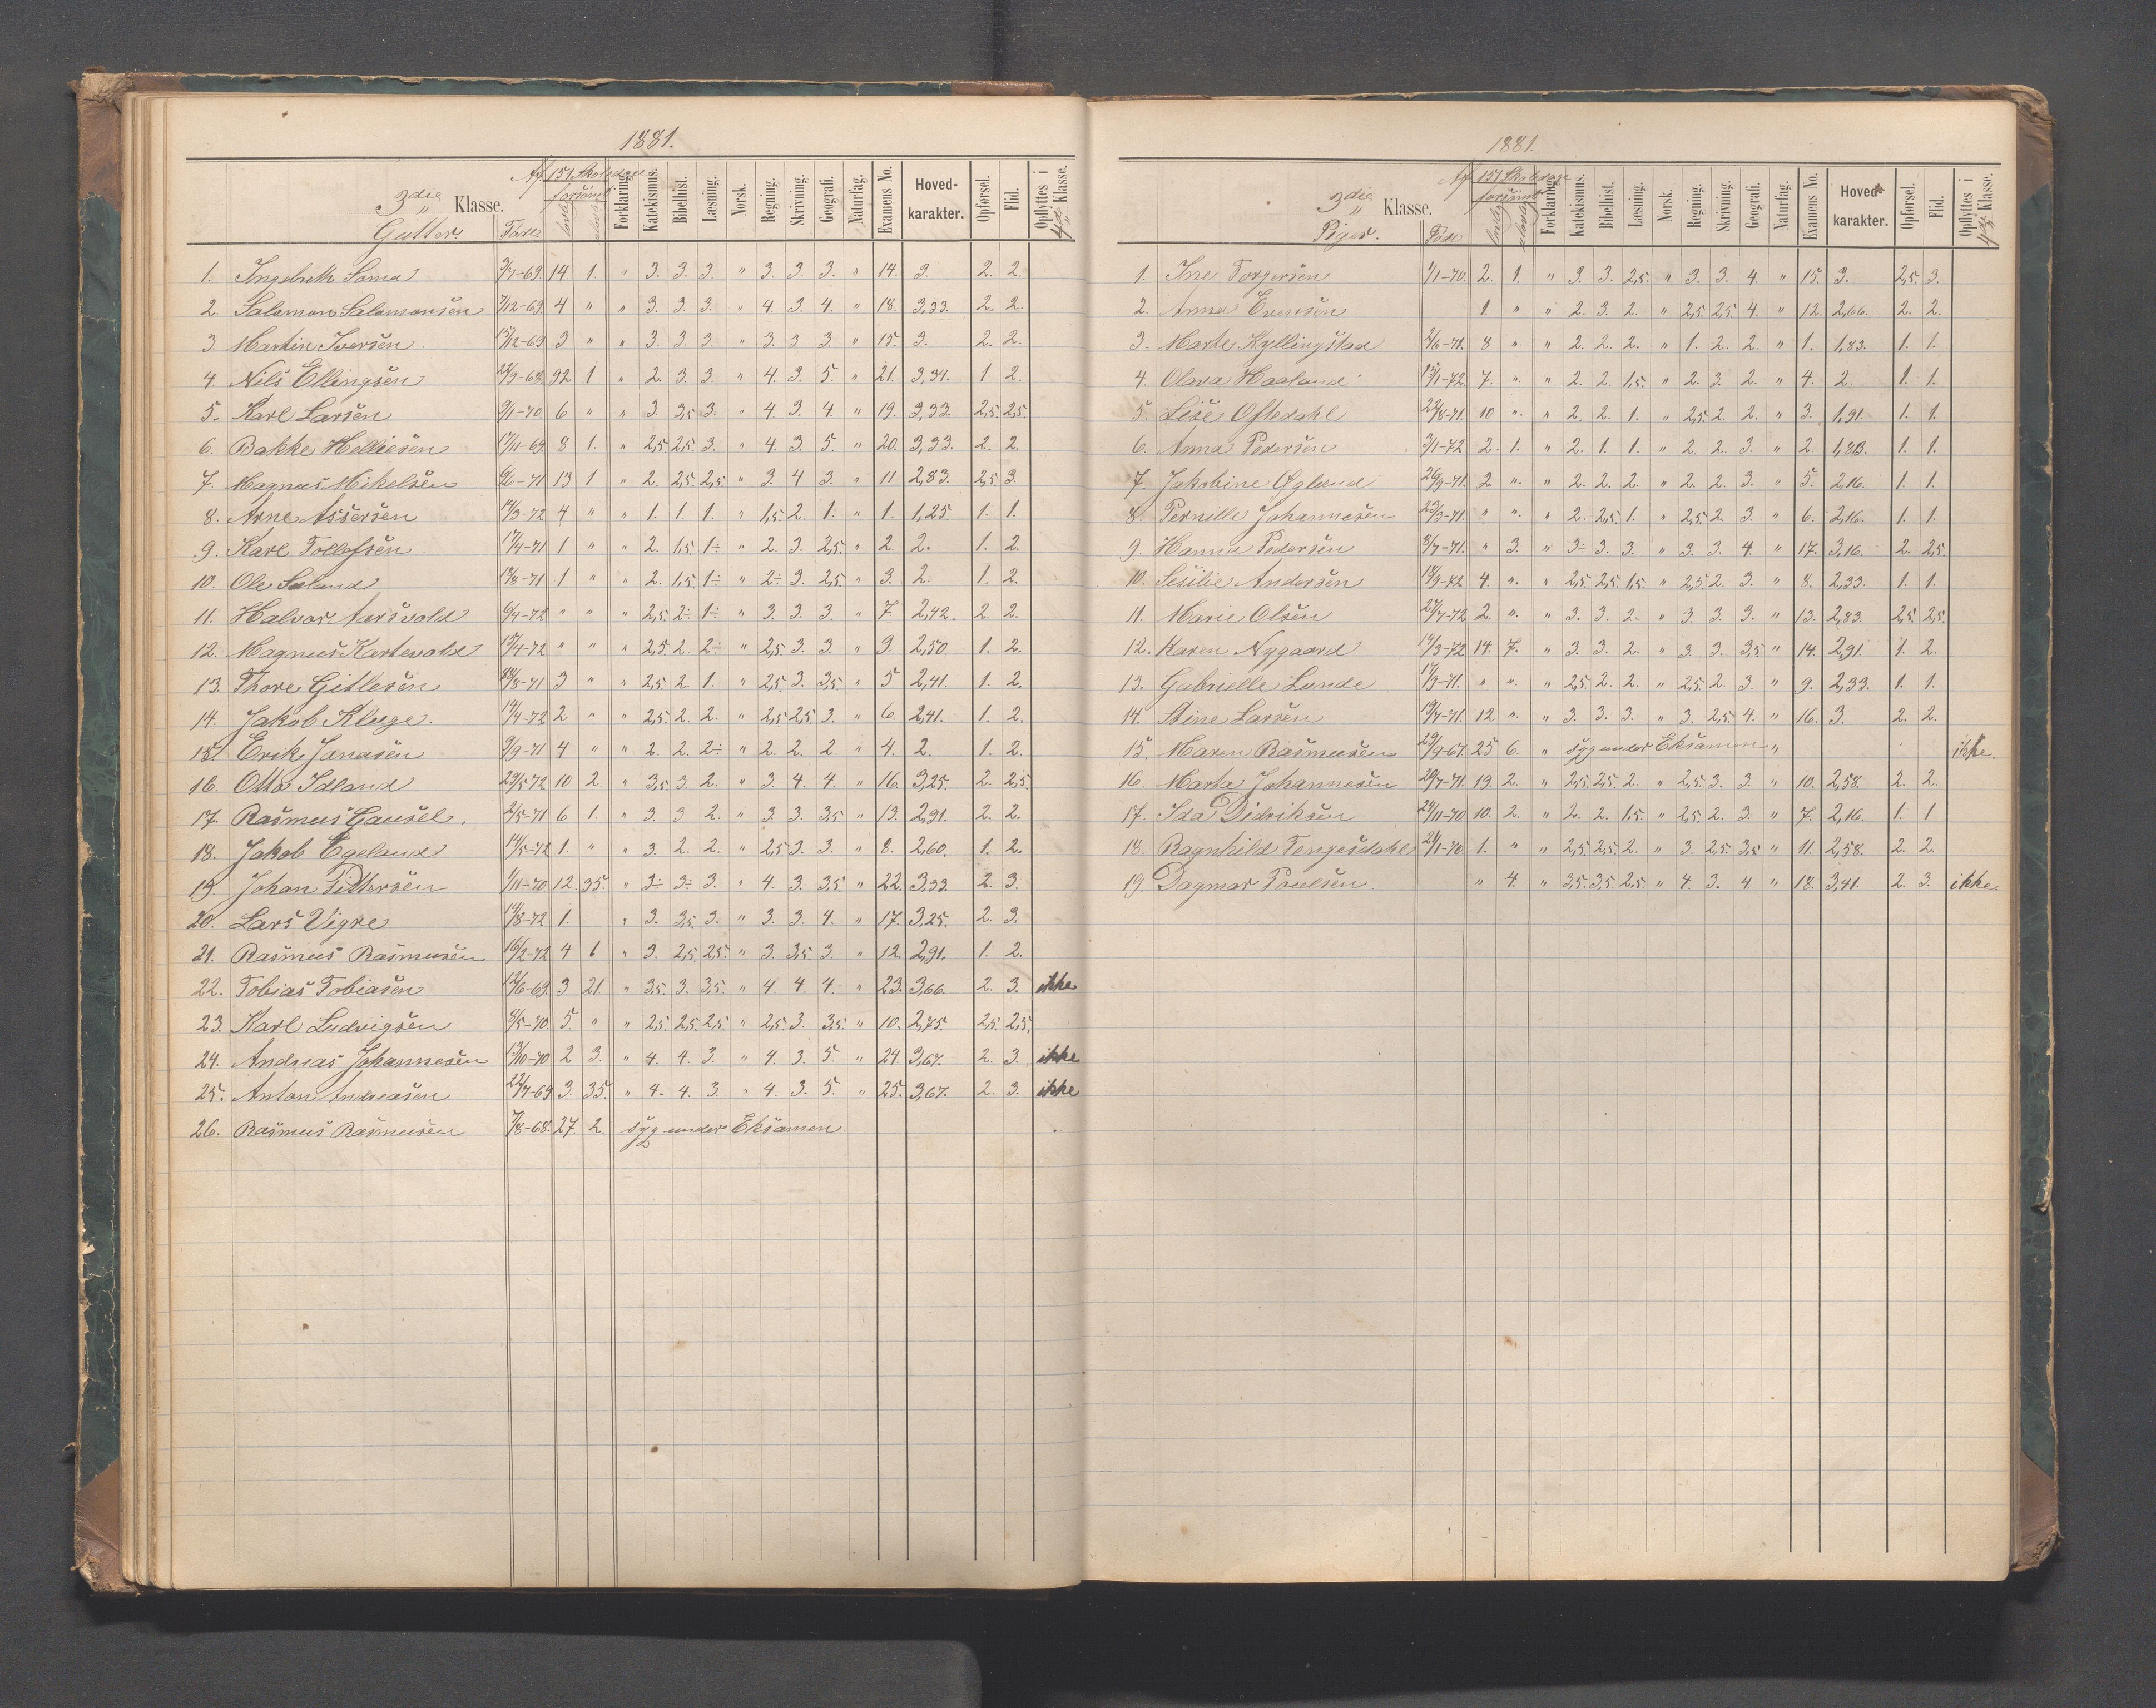 1881.
3die Klasse. Gutter. Føres Af 151 Skoledage forsømt Forklaring. Katekismus. Bibelhist. Læsning. Norsk. Regning. Skrivning. Geografi. Naturfag. Examens No. Hoved-karakter. Opførsel. Flid. Opflyttes i 4de Klasse.
1. Ingebreth Soma 2/7-69 14 1. " 3. 3. 3. " 3. 3. 3. " 14. 3. 2. 2.
2. Salamon Salamonsen 7/12-69 4 " " 3. 3. 3. " 4. 3. 4. " 18. 3,33. 2. 2.
3. Martin Iversen 15/12-69 3 " " 3. 3. 3. " 3. 3. 3. " 15. 3. 2. 2.
4. Nils Ellingsen 22/9-68 32 1 " 2. 3. 3. " 4. 3. 5. " 21. 3,34. 1 2.
5. Karl Larsen 9/1-70 6 " " 3. 3,5 3. " 4. 3. 4. " 19. 3,33. 2,5. 2,5.
6. Bakke Helliesen 17/11-69 8 1. " 2,5. 2,5. 3. " 4. 3. 5. " 20. 3,33. 2. 2.
7. Magnus Mikelsen 6/6-71 13 1 " 2. 2,5. 2,5. " 3. 4 3. " 11 2,83. 2,5. 3.
8. Arne Assersen 14/3-72 4 " " 1. 1. 1. " 1,5. 2. 1. " 1. 1,25. 1. 1.
9. Karl Tollefsen 17/4-71 1 " " 2. 1,5 1÷ " 2. 3. 2,5. " 2. 2. 1. 2.
10. Ole Sæland 13/8-71 1 " " 2. 1,5 1÷ " 2÷ 3. 2,5 " 3. 2. 1. 2.
11. Halvor Aarsvold 6/4-72 " " " 2,5. 2÷ 1÷ " 3. 3. 3. " 7. 2,42. 2. 2.
12. Magnus Kartevold 15/4-72 " " " 2,5. 2. 2÷ " 2,5. 3. 3. " 9. 2,50. 1. 2.
13. Thore Gitlesen 28/8-71 3 " " 2,5. 2. 1. " 2,5. 3. 3,5. " 5 2,41. 1. 2.
14. Jakob Kluge. 14/4-72 2 " " 2,5. 2. 2. " 2,5 2,5 3. " 6. 2,41. 1. 2.
15. Erik Jonasen 9/9-71 4 " " 2. 2. 2÷ " 2. 2. 2. " 4. 2. 1. 2.
16. Otto Idland 29/5-72 10 2. " 3,5. 3. 2. " 3. 4. 4. " 16. 3,25. 2. 2,5.
17. Rasmus Gausel. 2/5-71 6 1. " 3. 3 2. " 3. 3. 3,5 " 13. 2,91. 2. 2.
18. Jakob Egeland 14/5-72 1. " " 3. 2. 2. " 2,5 3. 3. " 8. 2,60. 1. 2.
19. Johan Pettersen 1/11-70 12. 35. " 3÷ 3÷ 3. " 4. 3. 3,5 " 22. 3,33. 2. 3.
20. Lars Vigre 14/8-72 1. " 3. 3,5. 3. " 3. 3. 4. " 17. 3,25. 2. 3.
21. Rasmus Rasmusen 16/2-72 4 6 " 3. 2,5. 2,5. " 3. 3,5 3. " 12. 2,91. 1. 2.
22. Tobias Tobiasen 12/6-69. 3 21. " 3,5. 3. 3,5. " 4. 4. 4. " 23. 3,66. 2. 3. ikke
23. Karl Ludvigsen 8/5-70 5. " " 2,5. 2,5. 2,5. " 2,5. 3. 3,5. " 10. 2,75. 2,5. 2,5.
24. Andreas Johannesen 13/10-70 2 3. " 4. 4. 3. " 4. 3. 5 " 24. 3,67. 2. 3. ikke
25. Anton Andreasen 22/7-69 3. 35. " 4. 4. 3 " 4. 3. 5. " 25. 3,67. 2. 3. ikke
26. Rasmus Rasmusen 7/8-68. 27. 2. syg under Eksamen.
1881.
3die Klasse. Piger. Født Af 151 Skoledage forsømt Forklaring. Katekismus. Bibelhist. Læsning. Norsk. Regning. Skrivning. Geografi. Naturfag. Examens No. Hoved-karakter. Opførsel. Flid. Opflyttes i 4de Klasse.
1. Ine Torgersen 1/1-70. 2. 1. " 3. 3. 2,5. " 3. 3. 4. " 15. 3. 2,5. 3.
2. Anna Evensen 1. " " 2. 3. 2. " 2,5. 2,5. 4. " 12. 2,66. 2. 2.
3. Marte Kyllingstad 2/6-71. 8 " " 2. 2. 2. " 1. 2. 2. " 1. 1,83. 1. 1.
4. Olava Haaland 15/1-72. 7. " " 2. 2. 1,5. " 2. 3. 2. " 4. 2. 1. 1.
5. Lise Oftedahl 22/8-71. 10 " " 2. 2. 1. " 2,5. 2. 2. " 3. 1,91. 1. 1.
6. Anna Pedersen 3/1-72 2. 1. " 2. 1. 1. " 2. 2. 3. " 2. 1,83. 1. 1.
7. Jakobine Øglænd 26/9-71. 2. " " 2. 2. 2. " 2. 2. 3. " 5. 2,16. 1. 1.
8. Pernille Johannesen 23/3-71. " " " 2. 2,5. 1. " 2,5. 2. 3. " 6. 2,16. 1. 1.
9. Hanna Pedersen 8/7-71. " 3. " 3÷ 3. 3. " 3. 3. 4. " 17. 3,16. 2. 2,5.
10. Sesilie Andersen 18/9-72 4. " " 2,5. 2,5. 1,5. " 2,5. 2. 3. " 8. 2,33. 1. 1.
11. Marie Olsen 27/7-72 2. " " 3. 3. 2. " 3. 3. 3. " 13. 2,83. 2,5. 2,5.
12. Karen Nygaard 17/3-72 14. 7. " 3. 3. 2. " 3. 3. 3,5. " 14. 2,91. 1. 2.
13. Gabrielle Lunde 17/9-71. " " " 2,5. 2. 2. " 2,5. 2. 3. " 9. 2,33. 1. 1.
14. Stine Larsen 19/7-71. 12 " " 3. 3. 3. " 3. 2,5. 4. " 16. 3. 2. 2.
15. Maren Rasmusen 29/9-67. 25 6. " syg under Eksamen " ikke.
16. Marte Johannesen 20/7-71. 19. 2. " 2,5. 2,5. 2. " 2,5. 3. 3. " 10. 2,58. 2. 2.
17. Ida Didriksen 24/11-70 10. 2. " 2. 2. 1,5. " 2,5. 2. 3. " 7. 2,16. 1. 1
18. Ragnhild Tengesdahl 21/1-70. 1. " " 2,5. 2,5. 2. " 3. 2,5. 3,5 " 11. 2,58. 2. 2.
19. Dagmar Poulsen. " 4. " 3,5. 3,5. 2,5. " 4. 3. 4. " 18. 3,41. 2. 3. ikke.